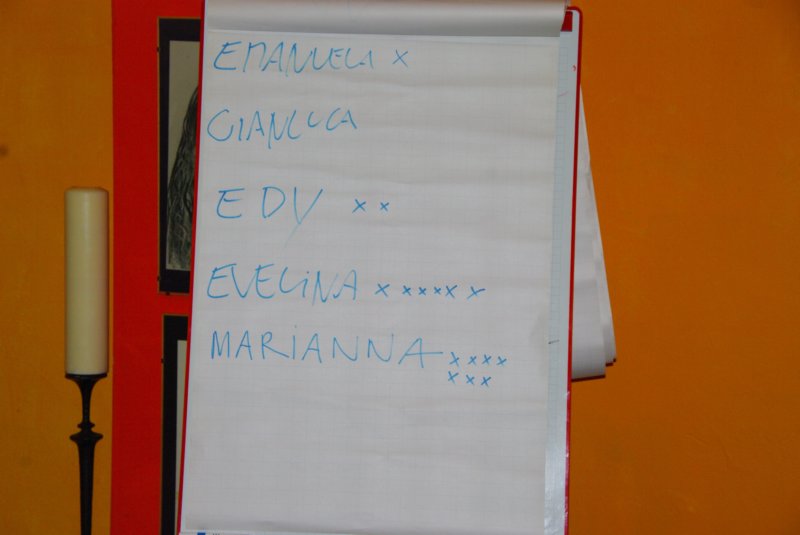 EMANUELA x
GIANLUCA
EDY x x
EVELINA x x x x x x
MARIANNA x x x x
x x x